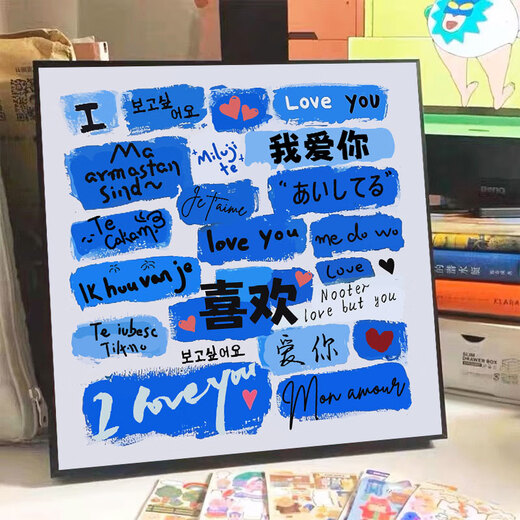 I
보고싶
어요
Love you
Ma
armastan
sind~
Miluji
te
我爱你
Je t'aime
"あいしてる"
Te
Cakam?
love you
me do wo
Ik hou van je
Love
喜欢
Nooter
love but you
Te iubesc
보고싶어요
爱你
I love you
Mon amour
BENQ
KLARA
SLIM
DRAWER BOX